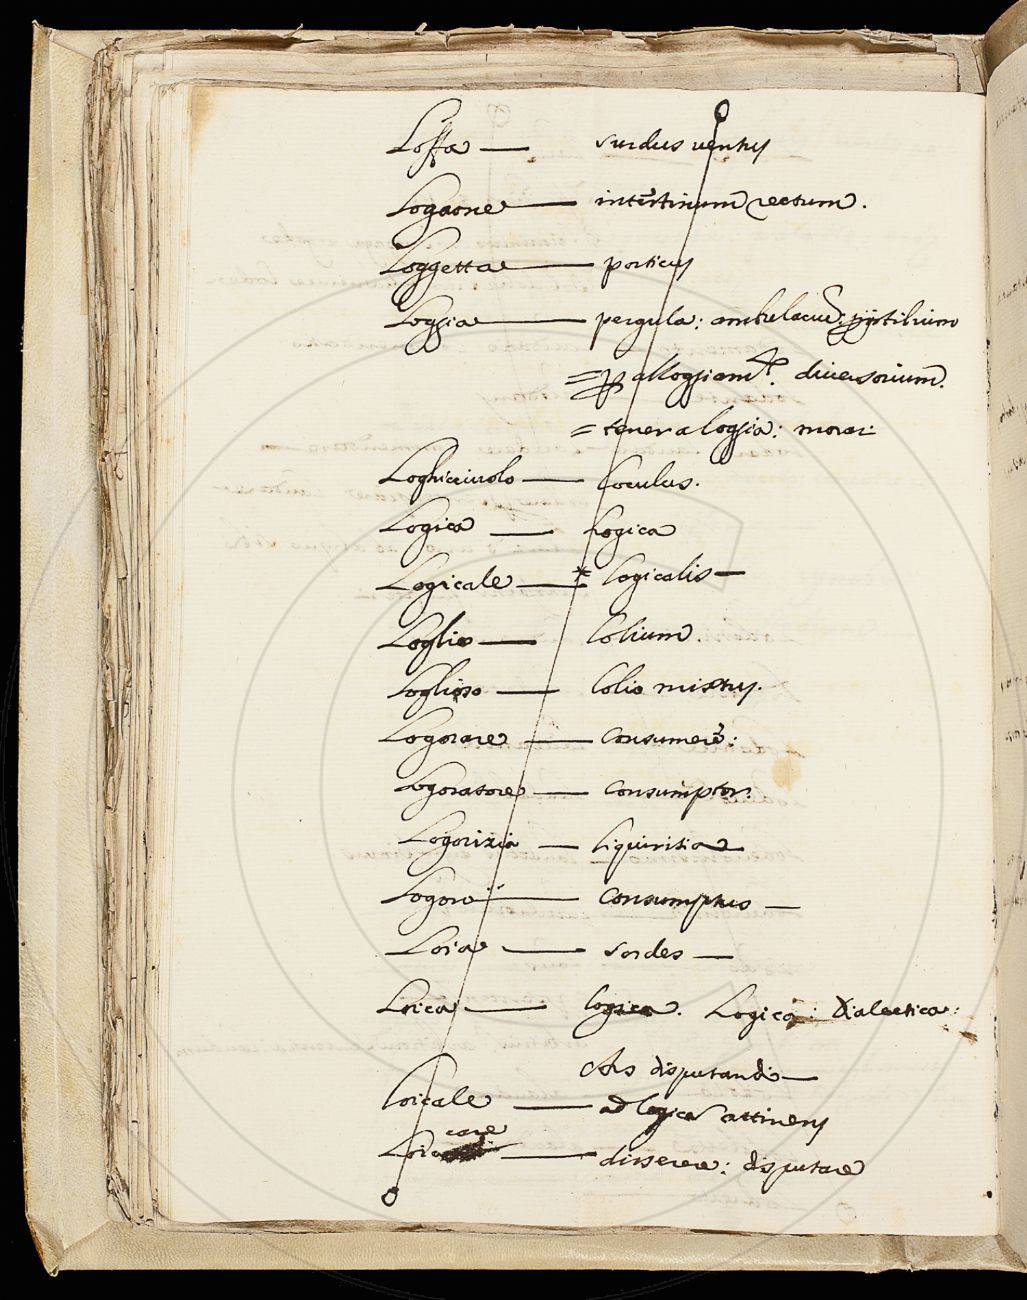 Loffa — surdus ventus
Logaone — intestinum rectum.
Loggetta — porticus
Loggia — pergula: ambulacrum:
= p alloggiamto. diversorium.
= tener a loggia: morari
Loghicciuolo — loculus.
Logica — Logica
Logicale — * logicalis —
Loglio — lolium.
Loglioso — lolio mixtus.
Logorare — consumere:
Logoratore — consumptor.
Logorizia — liquiritia
Logoro — consumptus —
Loia — sordes —
Loica — logica. Logica: Dialectica:
Ars disputandi —
Loicale — ad logica attinens
Loicare — disserere: disputare